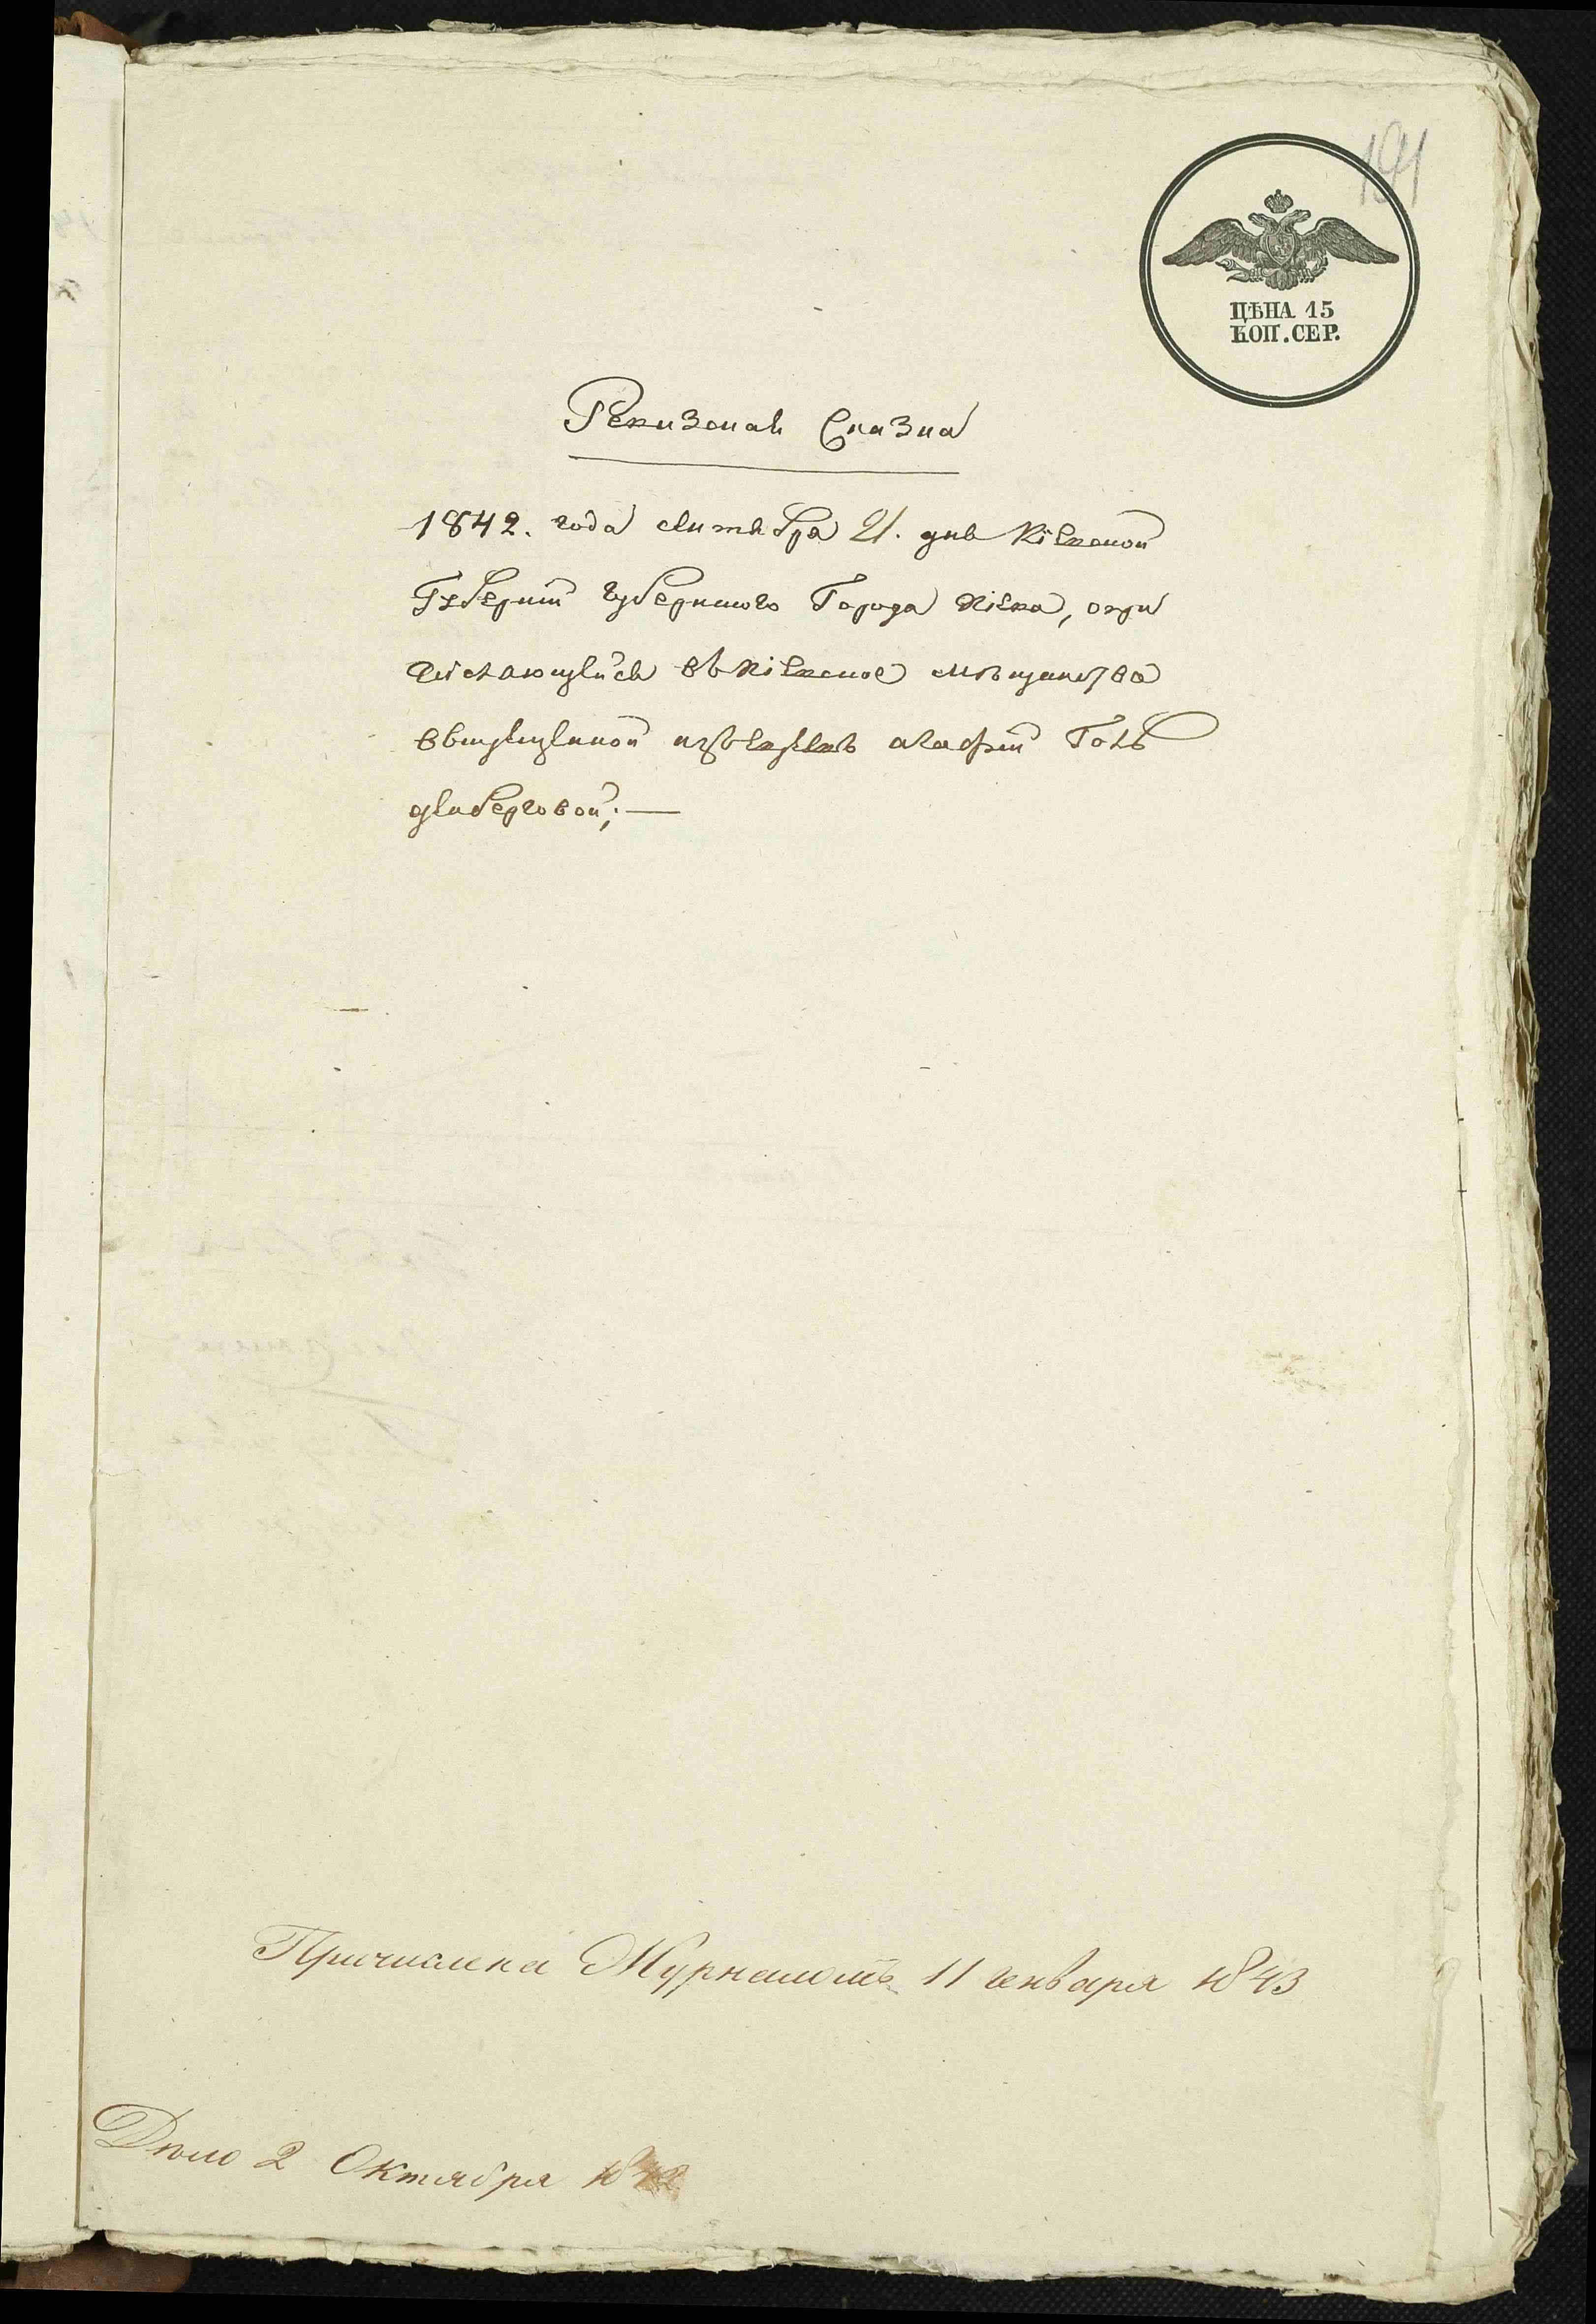 191
ЦѢНА 15
КОП. СЕР.
Ревизская Сказка
1842. года сентября 21. дня Кіевской
Губерніи губернского Города Кіева, о при
числяющейся въ Кіевское мѣщанство
изъ евреевъ Голь
денберговой;—
Причислена Журналомъ 11 генваря 1843
Дѣло 2 Октября 1842